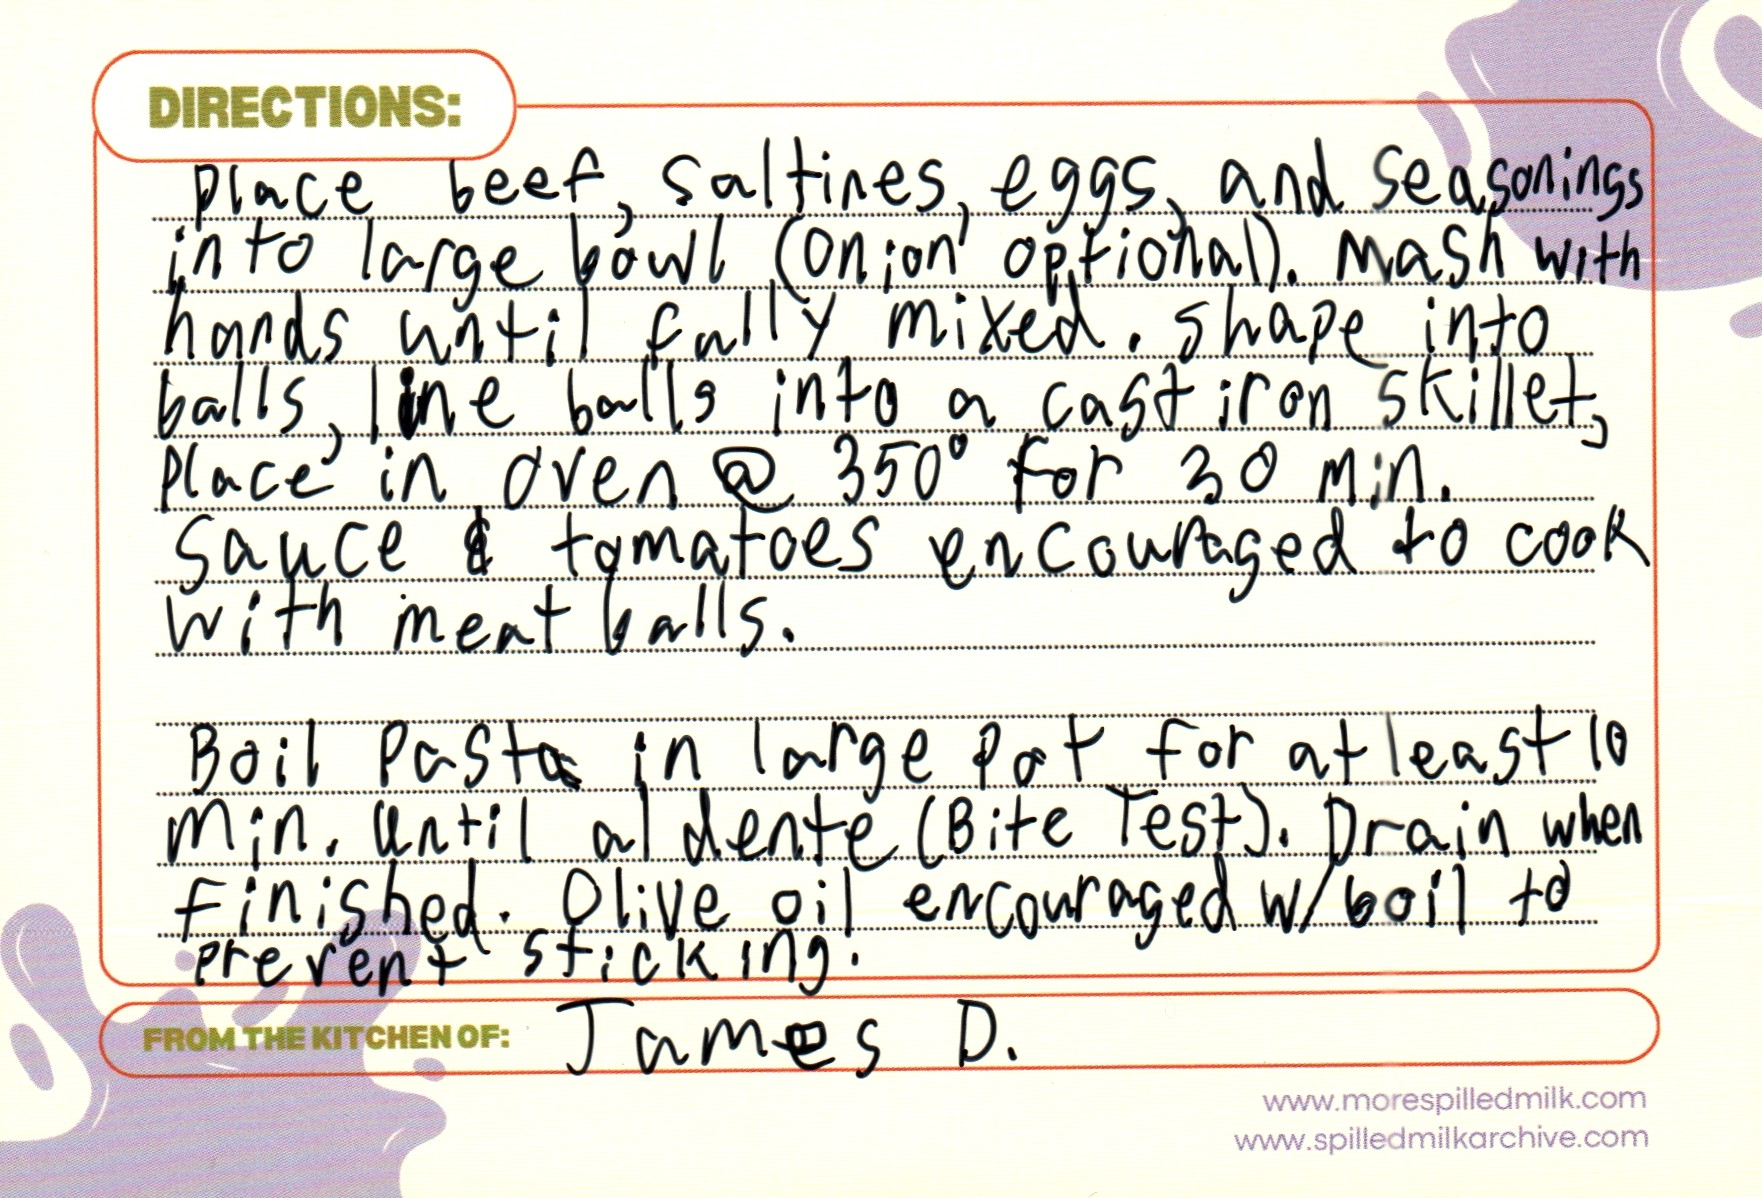 DIRECTIONS:
Place beef, saltines, eggs, and seasonings
into large bowl (onion optional). Mash with
hands until fully mixed. Shape into
balls, line balls into a cast iron skillet,
Place in oven @ 350° for 30 min.
Sauce & tomatoes encouraged to cook
with meat balls.
Boil Pasta in large pot for at least 10
Min. Until al dente (Bite Test). Drain when
finished. Olive oil encouraged w/ boil to
prevent sticking.
FROM THE KITCHEN OF: James D.
www.morespilledmilk.com
www.spilledmilkarchive.com